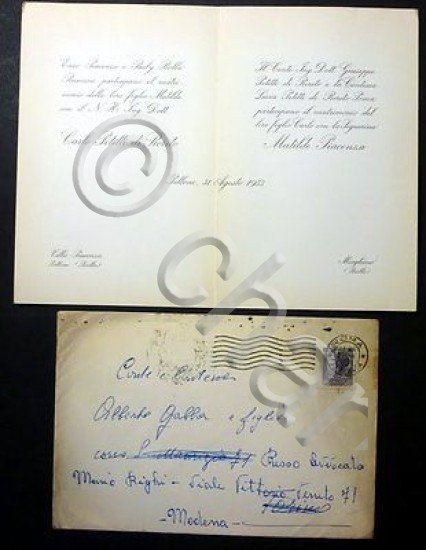 Enzo Piacenza e Paoly Botta
Piacenza partecipano il matri-
monio della loro figlia Matilde
con il N. H. Ing. Dott.
Carlo Petitti di Roreto
Il Conte Ing. Dott. Giuseppe
Petitti di Roreto e la Contessa
Luisa Petitti di Roreto
partecipano il matrimonio del
loro figlio Carlo con la Signorina
Matilde Piacenza
Pollone, 31 Agosto 1953
Villa Piacenza
Pollone (Biella)
(Biella)
Conte e Contessa
Alberto Gabba e figlia
corso 71 Presso Avvocato
Mario Righi - Viale Vittorio Veneto 71
Torino
- Modena -
© Charta